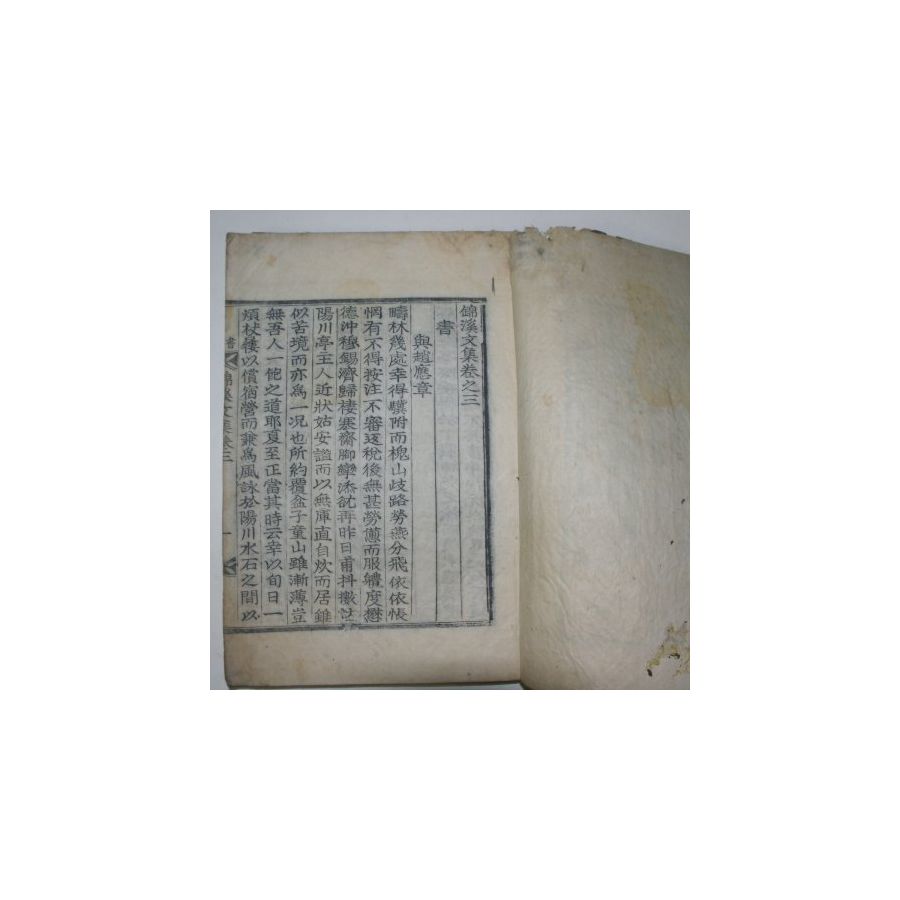 錦溪文集卷之三
書
與趙應章
疇林幾處幸得驥附而槐山歧路勞燕分飛依依悵
惘有不得按注不審返稅後無甚勞憊而服軆度懋
德沖穆錫濟歸棲寒齋脚攣添祟再昨日甫抖擻
陽川亭主人近狀姑安謐而以無庫直自炊而居雖
似苦境而亦爲一况也所約覆盆子童山雖漸薄豈
無吾人一飽之道耶夏至正當其時云幸以旬日一
煩杖屨以償宿營而兼爲風詠於陽川水石之間以
書 錦溪文集卷三 一